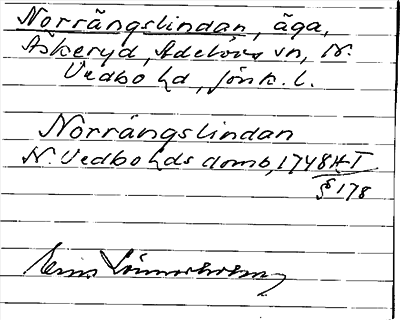 Norrängslindan, äga,
Askeryd, Adelövs sn, N.
Vedbo hd, Jönk. l.
Norrängslindan
N. Vedbo hds domb, 1748 HT
§ 178